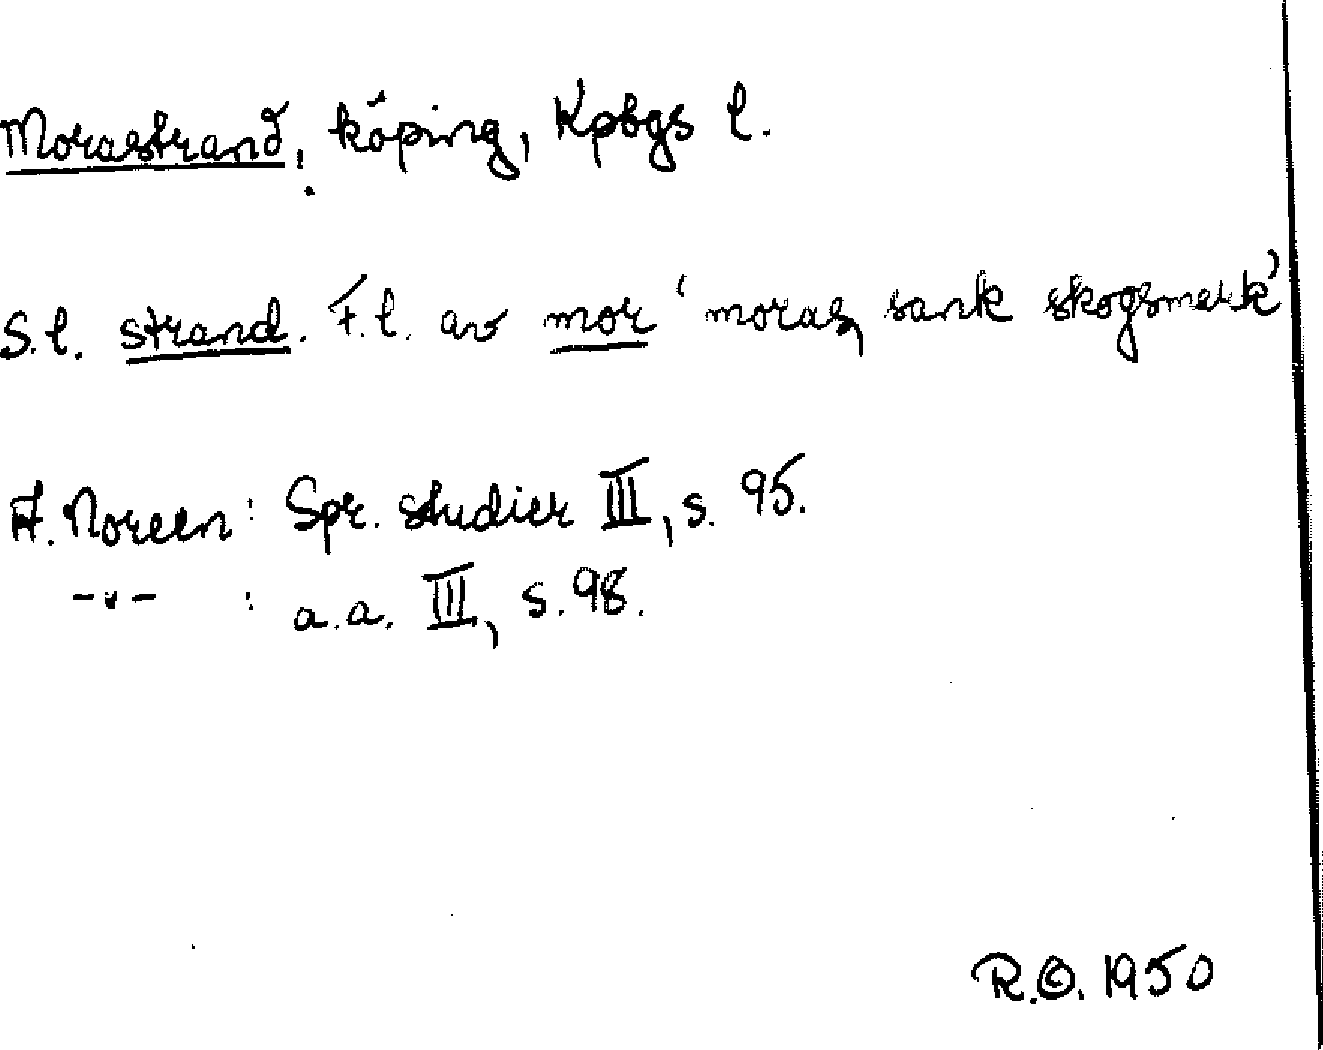 Morastrand, köping, Kpbgs l.
S.l. strand. F.l. av mor 'moras, sank skogsmark'
A. Noreen: Spr. studier III, s. 95.
-"- : a.a. III, s. 98.
R.O. 1950